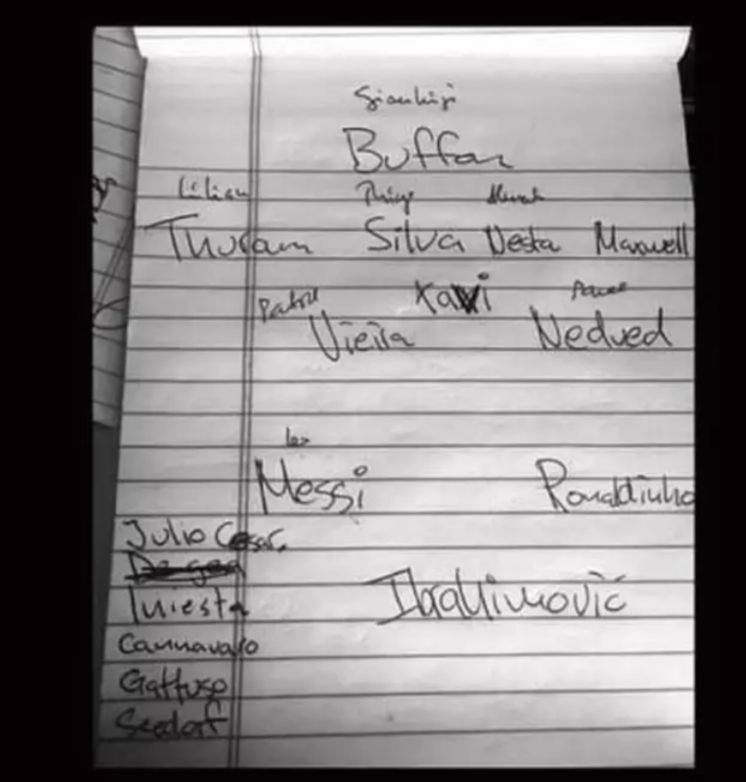 Gianluigi
Buffon
Lilian Thiago
Thuram Silva Nesta Maxwell
Xavi
Patric Pavel
Vieira Nedved
Leo
Messi Ronaldinho
Julio Cesar.
Iniesta Ibrahimović
Cannavaro
Gattuso
Seedorf